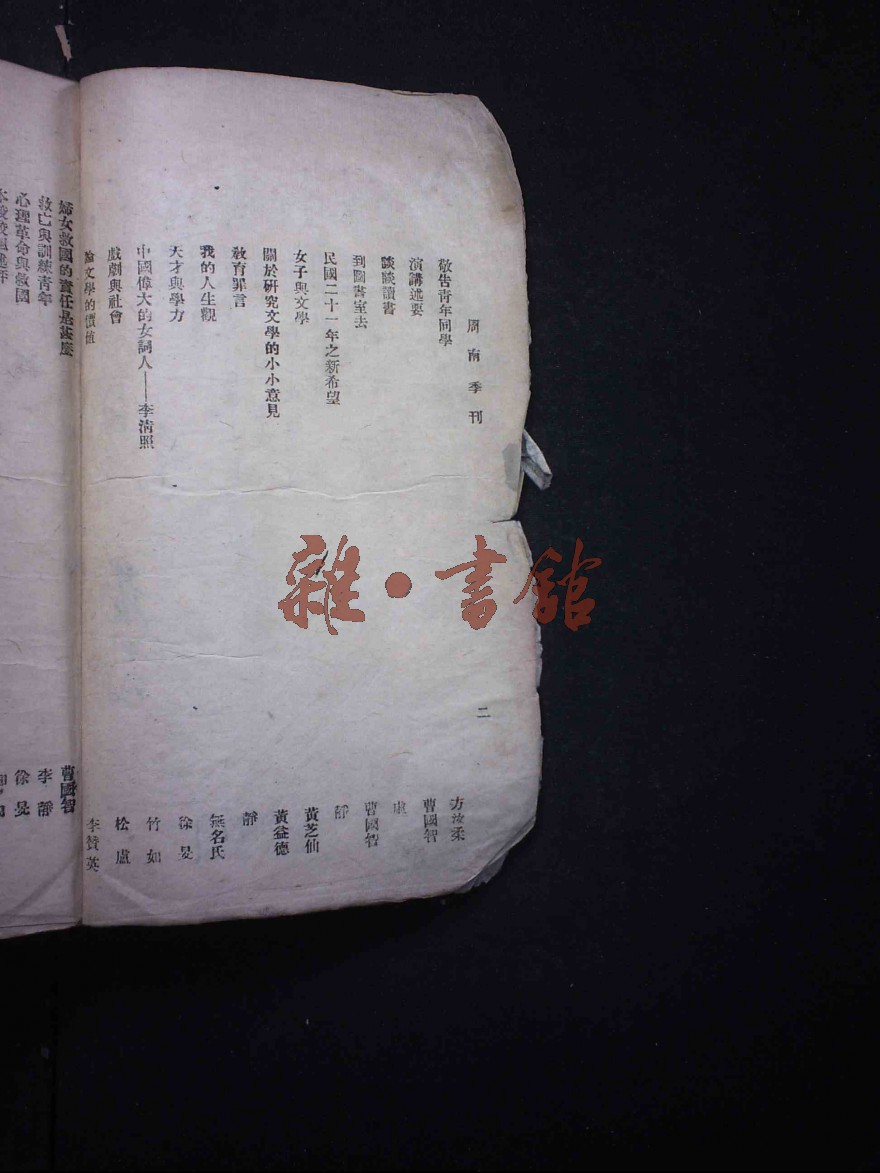 周南季刊 二
敬告青年同學 方汝柔
演講述要 曹國智
談談讀書
到圖書室去 曹國智
民國二十一年之新希望 靜
女子與文學 黃芝仙
關於研究文學的小小意見 黃益德
教育罪言 靜
我的人生觀 無名氏
天才與學力 徐旻
中國偉大的女詞人——李清照 竹如
戲劇與社會 松盧
論文學的價值 李贊英
婦女救國的責任是甚麼 曹國智
救亡與訓練青年 李靜
心理革命與救國 徐旻
雜•書館